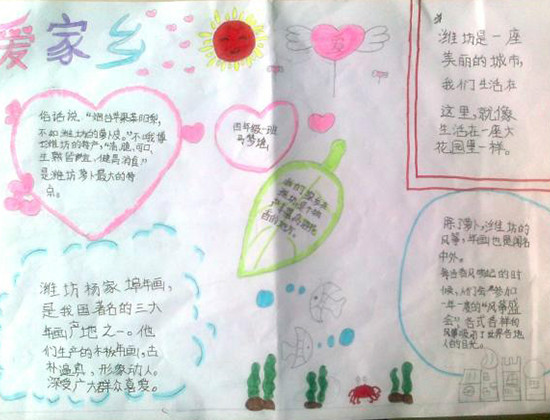 爱家乡
俗话说,"烟台苹果莱阳梨,
不如潍坊的萝卜皮。"
潍坊的特产,"清脆、可口、
生熟皆可吃,健胃消食"
是潍坊萝卜最大的特
点。
四年级一班
我们家乡
潍坊是一座
美丽的城市,
我们生活在
这里,就像
生活在一座大
花园里一样。
潍坊杨家埠年画,
是我国著名的三大
年画产地之一。他
们生产的木板年画,古
朴逼真,形象动人。
深受广大群众喜爱。
除了萝卜,潍坊的
风筝,年画也是闻名
中外。
每当春风吹起的时
候,人们会参加
一年一度的"风筝盛
会",各式各样的
风筝吸引了世界各地
人的目光。